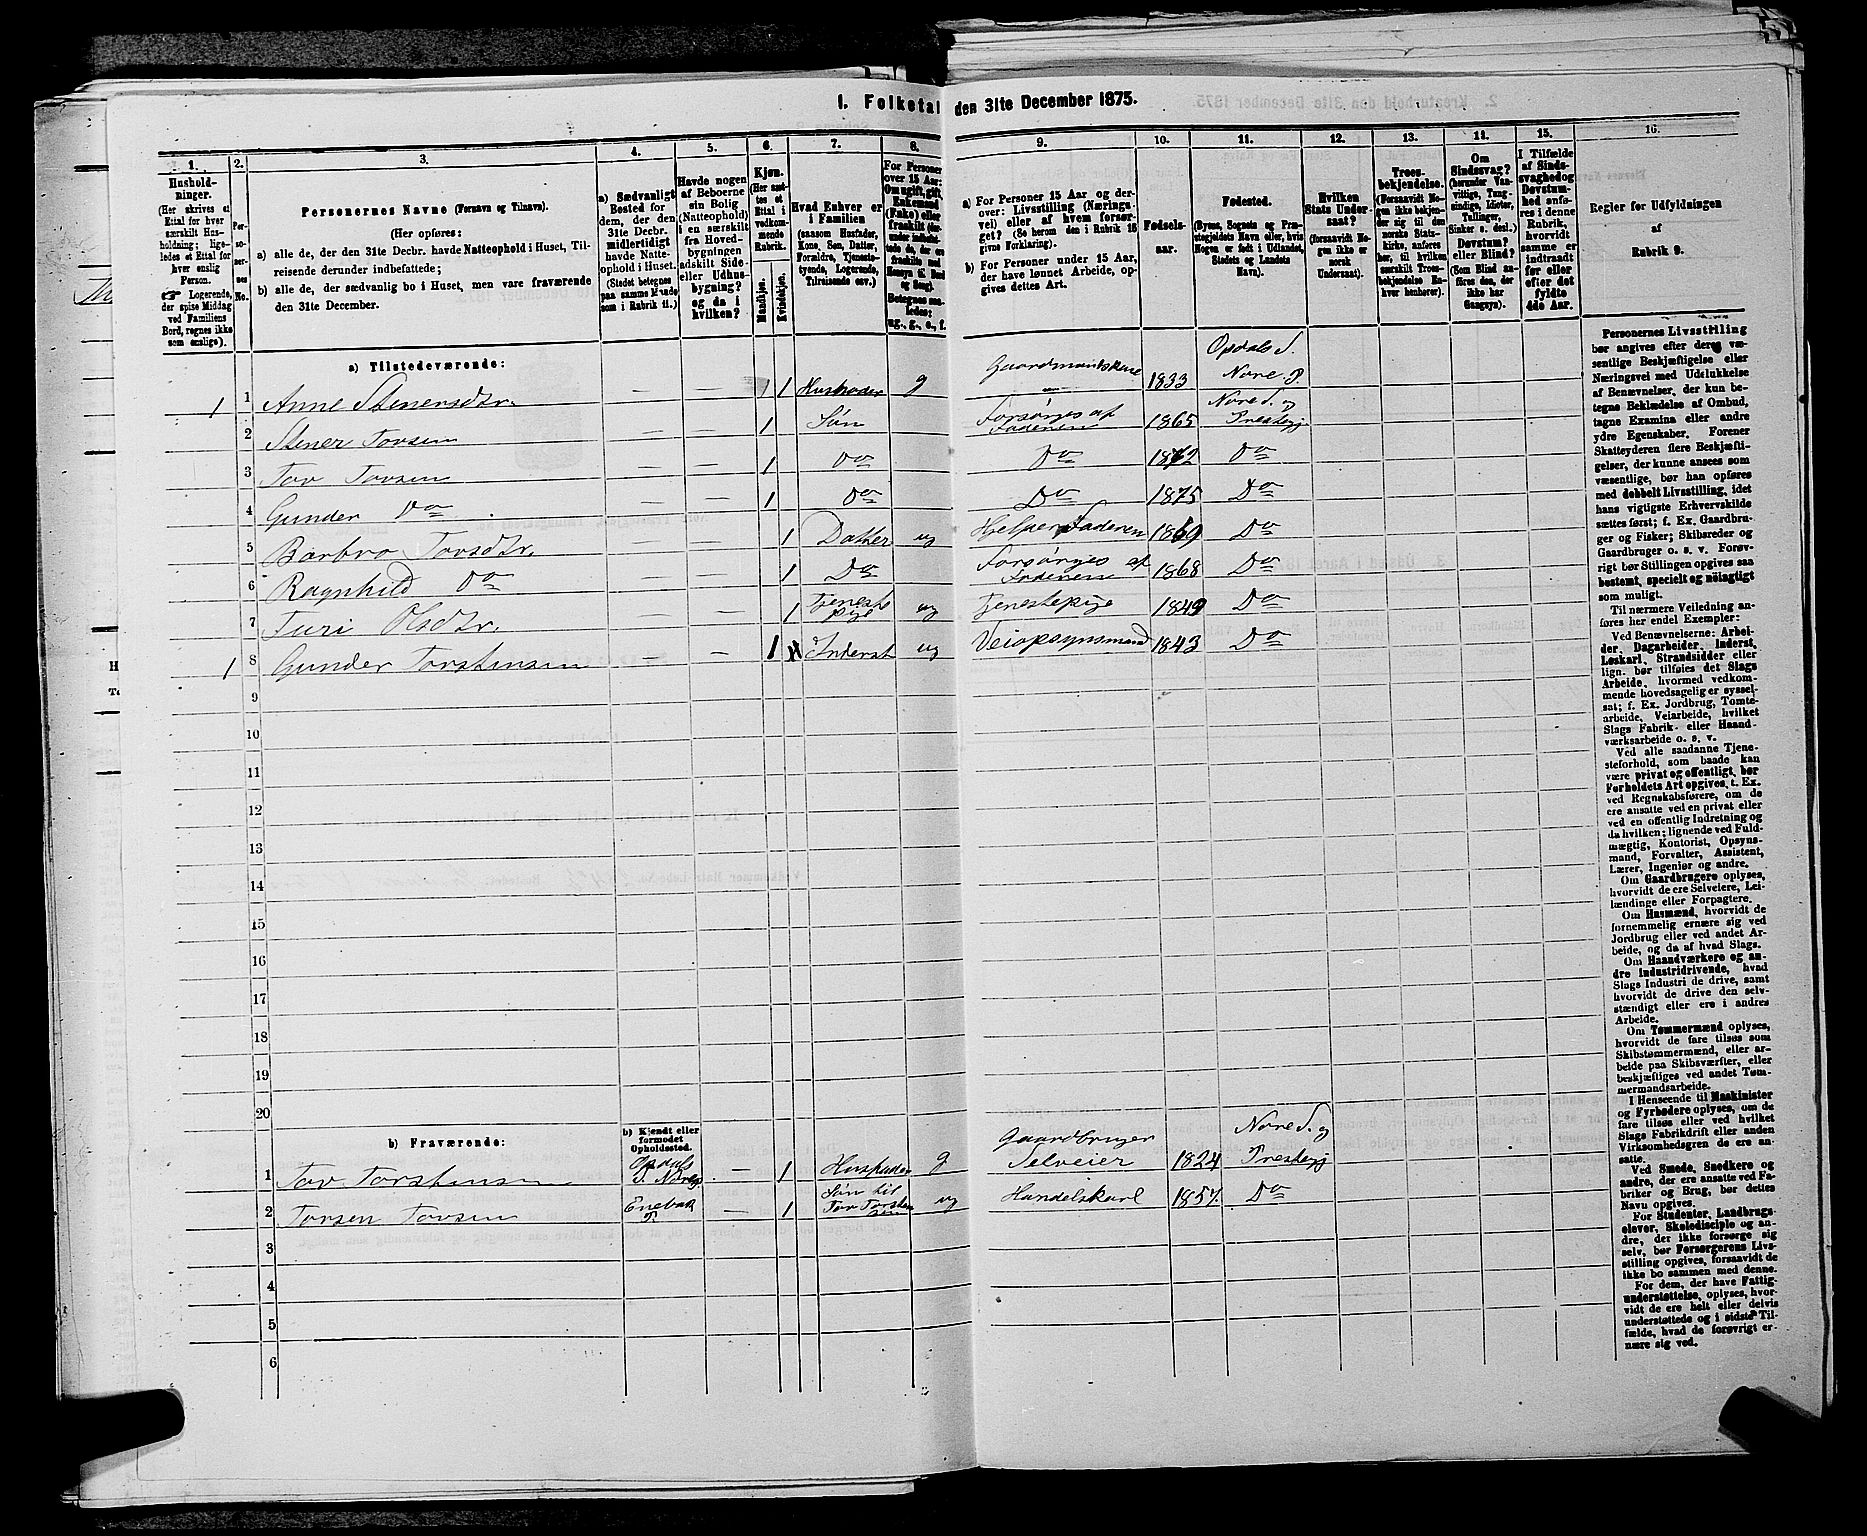 1. Folketal den 31te December 1875.
1. 2. 3. 4. 5. 6. 7. 8. 9. 10. 11. 12. 13. 14. 15. 16.
Hushold-
ninger.
(Her skrives et
Ettal for hver
særskilt Hus-
holdning; lige-
ledes et Ettal for
hver enslig
Person.
☞ Logerende,
der spise Middag
ved Familiens
Bord, regnes ikke
som enslige).
Per-
so-
ner-
nes
No.
Personernes Navne (Fornavn og Tilnavn).
(Her opføres:
a) alle de, der den 31te Decbr. havde Natteophold i Huset, Til-
reisende derunder indbefattede;
b) alle de, der sædvanlig bo i Huset, men vare fraværende
den 31te December.
a) Sædvanligt
Bosted for
dem, der den
31te Decbr.
midlertidigt
havde Natte-
ophold i Huset.
(Stedet betegnes
paa samme Maade
som i Rubrik 11.)
Havde nogen
af Beboerne
sin Bolig
(Natteophold)
i en særskilt
fra Hoved-
bygningen
adskilt Side-
eller Udhus-
bygning?
og da i
hvilken?
Kjøn.
(Her sæt-
tes et
Ettal i
vedkom-
mende
Rubrik.
Mandkjøn.
Kvindekjøn.
Hvad Enhver er
i Familien
(saasom Husfader,
Kone, Søn, Datter,
Forældre, Tjeneste-
tyende, Logerende,
Tilreisende osv.)
For Personer
over 15 Aar:
Om ugift, gift,
Enkemand
(Enke) eller
fraskilt
Betegnes saa-
ledes:
ug., g., e., f.
a) For Personer 15 Aar og der-
over: Livsstilling (Nærings-
vei) eller af hvem forsør-
get? (Se herom den i Rubrik 16
givne Forklaring).
b) For Personer under 15 Aar,
der have lønnet Arbeide, op-
gives dettes Art.
Fødsels-
aar.
Fødested.
(Byens, Sognets og Præ-
stegjeldets Navn eller, hvis
Nogen er født i Udlandet,
Stedets og Landets
Navn).
Hvilken
Stats Under-
saat?
(forsaavidt No-
gen ikke er
norsk
Undersaat).
Troes-
bekjendelse.
(Forsaavidt No-
gen ikke bekjen-
der sig til den
norske Stats-
kirke, anføres
her, til hvilken
særskilt Troes-
bekjendelse En-
hver henhører).
Om
Sindssvag?
(herunder Van-
vittige, Tung-
sindige, Idioter,
Tullinger,
Sinker o. desl.)
Døvstum?
eller Blind?
(Som Blind an-
føres den, der
ikke har
Gangsyn).
I Tilfælde
af Sinds-
svaghed og
Døvstum-
hed anfø-
res i denne
Rubrik,
hvorvidt
samme er
indtraadt
før eller
efter det
fyldte
4de Aar.
Regler for Udfyldningen
af
Rubrik 9.
a) Tilstedeværende:
1 1 Anne Stenersdtr. — — 1 Husmoder g Gaardmandskone 1833 Opdals S. Nore P.
2 Stener Tovsen — — 1 Søn Forsørges af Faderen 1865 Nore S. og Prestegj
3 Tov Tovsen — — 1 Do Do 1872 Do
4 Gunder Do — — 1 Do Do 1875 Do
5 Barbro Tovsdtr. — — 1 Datter ug Hjelper Faderen 1859 Do
6 Ragnhild Do — — 1 Do Forsørges af Faderen 1868 Do
7 Turi Olsdtr. — — 1 Tjeneste pige ug Tjenestepige 1849 Do
1 8 Gunder Torstensen — — 1 Inderst ug Veiopsynsmand 1843 Do
9
10
11
12
13
14
15
16
17
18
19
20
b) Fraværende:
b) Kjendt eller
formodet
Opholdssted.
1 Tov Torstensen Opdals S. Nore P — 1 Husfader g Gaardbruger Selveier 1824 Nore S. og Prestegj
2 Torsen Tovsen Enebak P — 1 Søn til Tov Torstensen ug Handelskarl 1857 Do
3
4
5
6
Personernes Livsstilling
bør angives efter deres væ-
sentlige Beskjæftigelse eller
Næringsvei med Udelukkelse
af Benævnelser, der kun be-
tegne Beklædelse af Ombud,
tagne Examina eller andre
ydre Egenskaber. Forener
Skatteyderen flere Beskjæfti-
gelser, der kunne ansees som
væsentlige, bør han opføres
med dobbelt Livsstilling, idet
hans vigtigste Erhvervskilde
sættes først; f. Ex. Gaardbru-
ger og Fisker; Skibsreder og
Gaardbruger o. s. v. Forøv-
rigt bør Stillingen opgives saa
bestemt, specielt og nøiagtigt
som muligt.
Til nærmere Veiledning an-
føres her endel Exempler:
Ved Benævnelserne: Arbei-
der, Dagarbeider, Inderst,
Løskarl, Strandsidder eller
lign. bør tilføies det Slags
Arbeide, hvormed vedkom-
mende hovedsagelig er syssel-
sat; f. Ex. Jordbrug, Tomte-
arbeide, Veiarbeide, hvilket
Slags Fabrik- eller Haand-
værksarbeide o. s. v.
Ved alle saadanne Tjene-
steforhold, som baade kan
være privat og offentligt, bør
Forholdets Art opgives, t. Ex.
ved Regnskabsførere, om de
ere ansatte ved en privat eller
ved en offentlig Indretning og
da hvilken; lignende ved Fuld-
mægtig, Kontorist, Opsyns-
mand, Forvalter, Assistent,
Lærer, Ingeniør og andre.
Om Gaardbrugere oplyses,
hvorvidt de ere Selveiere, Lei-
lændinge eller Forpagtere.
Om Husmænd, hvorvidt de
fornemmelig ernære sig ved
Jordbrug eller ved andet Ar-
beide, og da af hvad Slags.
Om Haandværkere og an-
dre Industridrivende, hvad
Slags Industri de drive, samt
hvorvidt de drive den selv-
stændigt eller ere i andres
Arbeide.
Om Tømmermænd oplyses,
hvorvidt de fare tilsøs som
Skibstømmermænd, eller ar-
beide paa Skibsværfter, eller
beskjæftiges ved andet Tøm-
mermandsarbeide.
I Henseende til Maskinister
og Fyrbødere oplyses, om de
fare tilsøs eller ved hvilket
Slags Fabrikdrift eller anden
Virksomhed de ere an-
satte.
Ved Smede, Snedkere og
andre, der ere ansatte ved Fa-
briker og Brug, bør dettes
Navn opgives.
For Studenter, Landbrugs-
elever, Skoledisciple og an-
dre, der ikke forsørge sig
selv, bør Forsørgerens Livs-
stilling opgives, forsaavidt de
ikke bo sammen med denne.
For dem, der have Fattig-
understøttelse, oplyses, hvor-
vidt de ere helt eller delvis
understøttede og i sidste Til-
fælde, hvad de forøvrigt er-
nære sig ved.